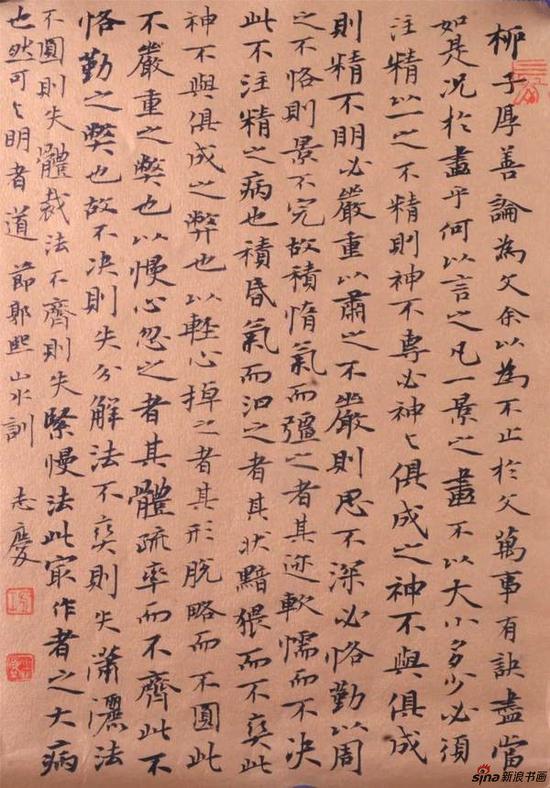 柳子厚善論為文余以為不止於文萬事有訣盡當
如是况於畫乎何以言之凡一景之畫不以大小多少必須
注精以一之不精則神不專必神与俱成之神不與俱成
則精不明必嚴重以肅之不嚴則思不深必恪勤以周
之不恪則景不完故積惰氣而彊之者其迹軟懦而不决
此不注精之病也積昏氣而汩之者其狀黯猥而不爽此
神不與俱成之弊也以輕心掉之者其形脱略而不圓此
不嚴重之弊也以慢心忽之者其體疏率而不齊此不
恪勤之弊也故不决則失分解法不爽則失瀟灑法
不圓則失體裁法不齊則失緊慢法此最作者之大病
也然可与明者道 節郭熙山水訓 志慶
sina新浪书画